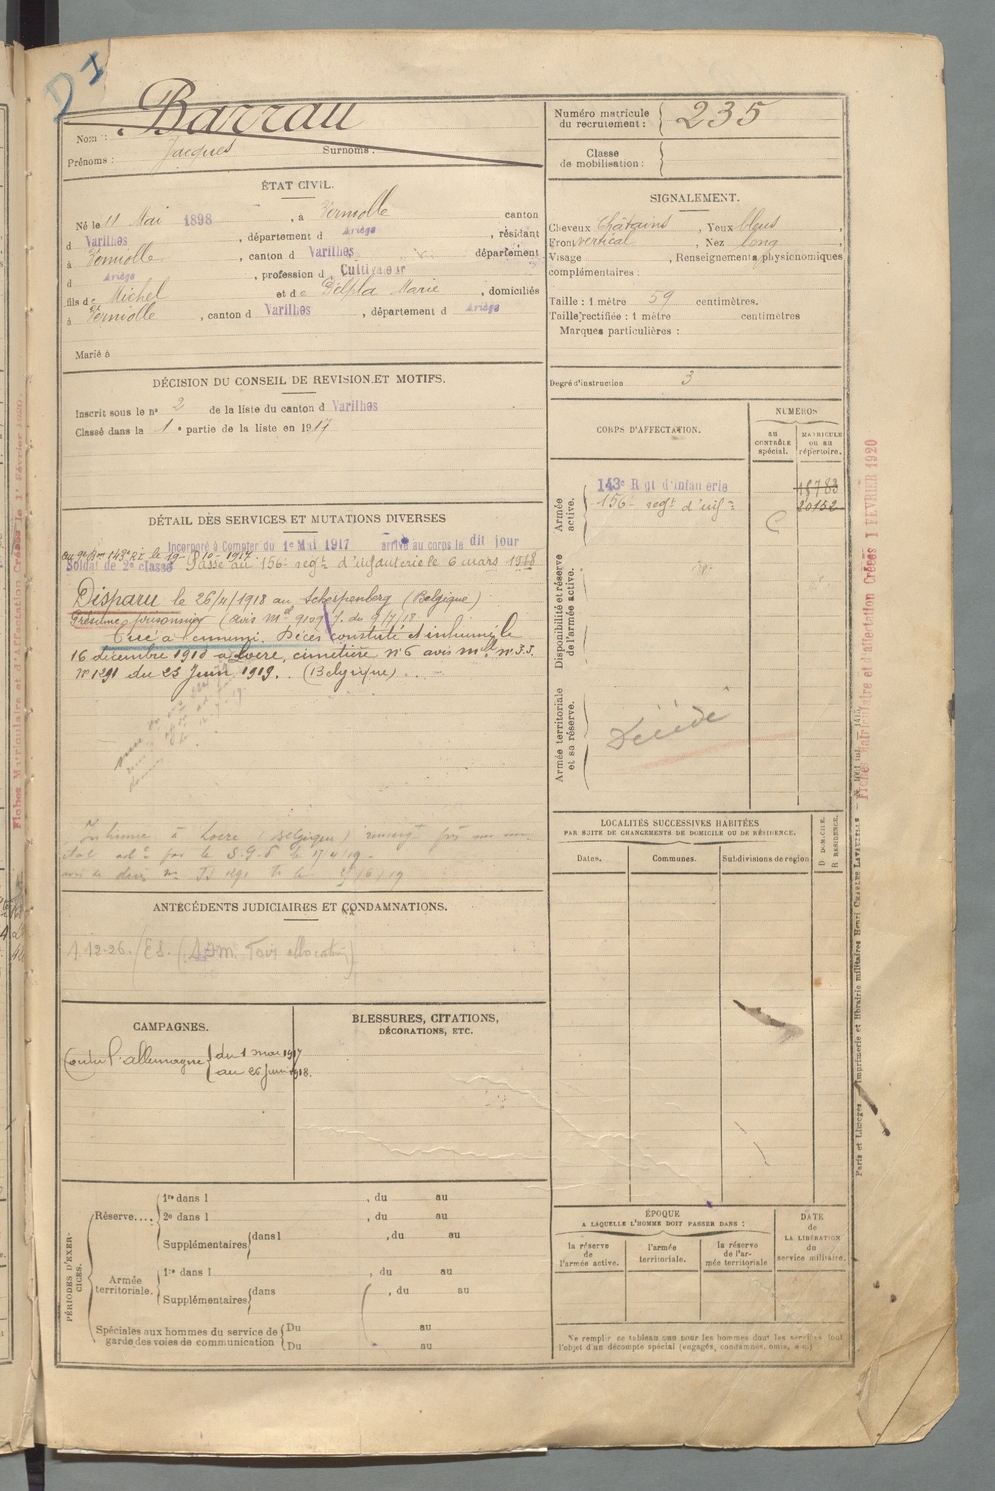 DI
Nom : Barrau
Prénoms : Jacques Surnoms :
ÉTAT CIVIL.
Né le 11 Mai 1898 , à Verniolle canton
d Varilhes , département d Ariège , résidant
à Verniolle , canton d Varilhes département
d Ariège , profession d Cultivateur
fils de Michel et de Delpla Marie , domiciliés
à Verniolle , canton d Varilhes , département d Ariège
Marié à
DÉCISION DU CONSEIL DE REVISION ET MOTIFS.
Inscrit sous le nº 2 de la liste du canton d Varilhes
Classé dans la 1e partie de la liste en 1917
DÉTAIL DES SERVICES ET MUTATIONS DIVERSES
Incorporé à Compter du 1er Mai 1917 arrivé au corps le dit jour
le 19-10-1917.
Soldat de 2e classe Passé au 156e regt d'infanterie le 6 mars 1918
Disparu le 26/4/1918 au Scherpenberg (Belgique)
Présumé prisonnier (avis
Tué à l'ennemi. Décès constaté et inhumé le
16 décembre 1918 à Locre, cimetière nº 6 avis
nº 1291 du 25 Juin 1919. (Belgique)
Inhumé à Locre (Belgique)
ANTÉCÉDENTS JUDICIAIRES ET CONDAMNATIONS.
CAMPAGNES.
Contre l'allemagne du 1 mai 1917
au 26 Juin 1918.
BLESSURES, CITATIONS,
DÉCORATIONS, ETC.
PÉRIODES D'EXERCICES.
Réserve....
1re dans l , du au
2e dans l , du au
Supplémentaires dans l , du au
Armée
territoriale.
1re dans l , du au
Supplémentaires dans , du au
Spéciales aux hommes du service de
garde des voies de communication
Du au
Du au
Numéro matricule
du recrutement : 235
Classe
de mobilisation :
SIGNALEMENT.
Cheveux châtains , Yeux bleus ,
Front vertical , Nez long ,
Visage , Renseignements physionomiques
complémentaires :
Taille : 1 mètre 59 centimètres.
Taille rectifiée : 1 mètre centimètres
Marques particulières :
Degré d'instruction 3
CORPS D'AFFECTATION.
NUMÉROS
au
CONTRÔLE
spécial.
MATRICULE
ou au
répertoire.
Armée
active.
143e Rgt d'infanterie 18783
156e regt d'infie 20152
Disponibilité et réserve
de l'armée active.
Armée territoriale
et sa réserve.
Décédé
LOCALITÉS SUCCESSIVES HABITÉES
PAR SUITE DE CHANGEMENTS DE DOMICILE OU DE RÉSIDENCE.
Dates. Communes. Subdivisions de région
D DOMICILE.
R RÉSIDENCE.
ÉPOQUE
A LAQUELLE L'HOMME DOIT PASSER DANS :
la réserve
de
l'armée active.
l'armée
territoriale.
la réserve
de l'ar-
mée territoriale
DATE
de
LA LIBÉRATION
du
service militaire.
Ne remplir ce tableau que pour les hommes dont les services font
l'objet d'un décompte spécial (engagés, condamnés, omis, etc.)
Paris et Limoges. — Imprimerie et librairie militaires Henri CHARLES-LAVAUZELLE
Fiches Matriculaire et d'affectation Créées 1 FEVRIER 1920
Fiches Matriculaire et d'Affectation Créées le 1er Février 1920.